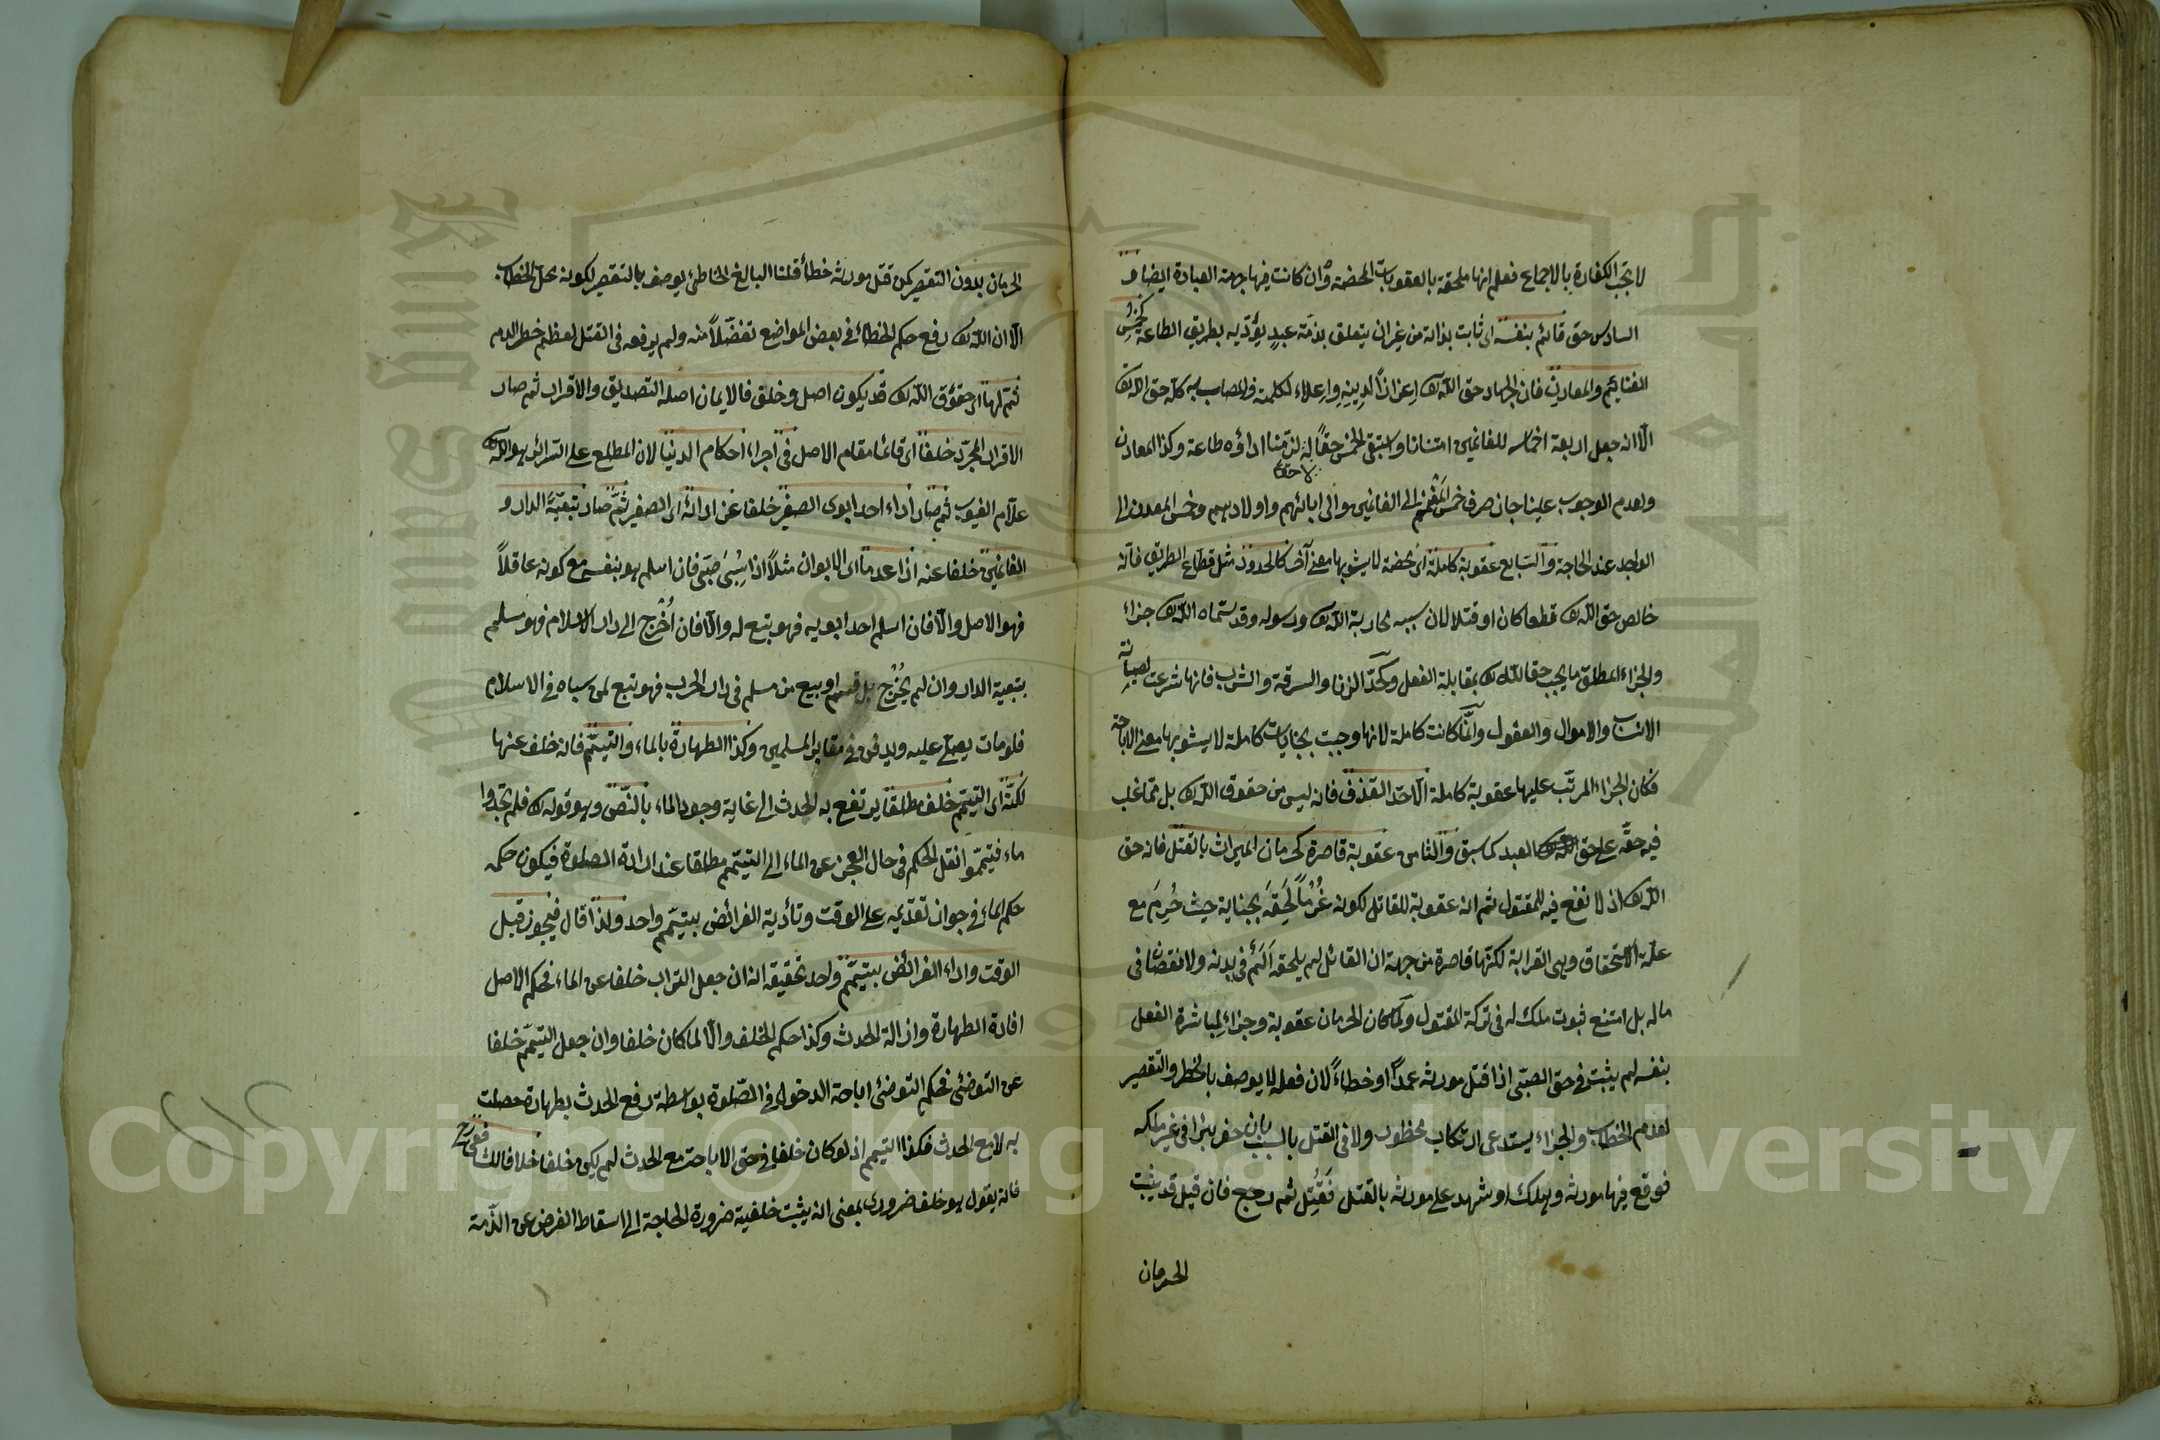 لا تجب الكفارة بالاجماع فعلم انها ملحقة بالعقوبات المحضة وان كانت فيها جهة العبادة ايضا و
السادس حق قائم بنفسه اى ثابت بذاته من غير ان يتعلق بذمة عبد يؤديه بطريق الطاعة كخمس
الغنائم والمعادن فان الجهاد حق الله تع اعزازا لدينه واعلاء لكلمته فالمصاب به كله حق الله تع
الا انه جعل اربعة اخماسه للغانمين امتنانا واستبقى الخمس حقا له لا حقا لزمنا اداؤه طاعة وكذا المعادن
ولعدم الوجوب علينا جاز صرف خمس المغنم الى الغانمين والى ابائهم واولادهم وخمس المعدن الى
الواجد عند الحاجة والسابع عقوبة كاملة اى محضة لا يشوبها معنى آخر كالحدود مثل قطاع الطريق فانه
خالص حق الله تع قطعا كان او قتلا لان سببه محاربة الله تع ورسوله وقد سماه الله تع جزاء
والجزاء المطلق ما يجب حقا لله تع بمقابلة الفعل وكحد الزنا والسرقة والشرب فانها شرعت لصيانة
الانساب والاموال والعقول وانما كانت كاملة لانها وجبت بجنايات كاملة لا يشوبها معنى الاباحة
فكان الجزاء المرتب عليها عقوبة كاملة الا حد القذف فانه ليس من حقوق الله تع بل مما غلب
فيه حقه على حق العبد كما سبق والثامن عقوبة قاصرة كحرمان الميراث بالقتل فانه حق
الله تع اذ لا نفع فيه للمقتول ثم انه عقوبة للقاتل لكونه غرما لحقه بجناية حيث حرم مع
علة الاستحقاق وهى القرابة لكنها قاصرة من جهة ان القاتل لم يلحقه الم فى بدنه ولا نقصان فى
ماله بل امتنع ثبوت ملك له فى تركة المقتول ولما كان الحرمان عقوبة وجزاء لمباشرة الفعل
بنفسه لم يثبت فى حق الصبى اذا قتل مورثه عمدا او خطاء لان فعله لا يوصف بالحظر والتقصير
لعدم الخطاب والجزاء يستدعى ارتكاب محظور ولا فى القتل بالسبب بان حفر بئرا فى غير ملكه
فوقع فيها مورثه وهلك او شهد على مورثه بالقتل فقتل ثم رجع فان قيل قد يثبت
الحرمان
الحرمان بدون التقصير كمن قتل مورثه خطأ قلنا البالغ الخاطئ يوصف بالتقصير لكونه محل الخطاب
الا ان الله تع رفع حكم الخطاء فى بعض المواضع تفضلا منه ولم يرفعه فى القتل لعظم خطر الدم
ثم لها اى حقوق الله تع قد يكون اصل وخلف فالايمان اصله التصديق والاقرار ثم صار
الاقرار المجرد خلفا اى قائما مقام الاصل فى اجراء احكام الدنيا لان المطلع على السرائر هو الله تع
علام الغيوب ثم صار اداء احد ابوى الصغير خلفا عن ادائه اى الصغير ثم صار تبعية الدار و
الغانمين خلفا عنه اذا عدما اى الابوان مثلا اذا سبى صبى فان اسلم هو بنفسه مع كونه عاقلا
فهو الاصل والا فان اسلم احد ابويه فهو تبع له والا فان اخرج الى دار الاسلام فهو مسلم
بتبعية الدار وان لم يخرج بل قسم او بيع من مسلم فى دار الحرب فهو تبع لمن سباه فى الاسلام
فلو مات يصلى عليه ويدفن فى مقابر المسلمين وكذا الطهارة بالماء والتيمم فانه خلف عنها
لكنه اى التيمم خلف مطلقا يرتفع به الحدث الى غاية وجود الماء بالنص وهو قوله تع فلم تجدوا
ماء فتيمموا نقل الحكم فى حال العجز عن الماء الى التيمم مطلقا عند ارادة الصلوة فيكون حكمه
حكم الماء فى جواز تقديمه على الوقت وتأدية الفرائض بتيمم واحد ولذا قال فيجوز قبل
الوقت واداء الفرائض بتيمم واحد تحقيقه انه ان جعل التراب خلفا عن الماء فحكم الاصل
افادة الطهارة وازالة الحدث وكذا حكم الخلف والا لما كان خلفا وان جعل التيمم خلفا
عن التوضئ فحكم التوضئ اباحة الدخول فى الصلوة بواسطة رفع الحدث بطهارة حصلت
به لا مع الحدث فكذا التيمم اذ لو كان خلفا فى حق الاباحة مع الحدث لم يكن خلفا خلافا للشافعى رح
فانه يقول هو خلف ضرورى بمعنى انه يثبت خلفيته ضرورة الحاجة الى اسقاط الفرض عن الذمة
Copyright © King Saud University
King Saud University
جامعة الملك سعود
1957